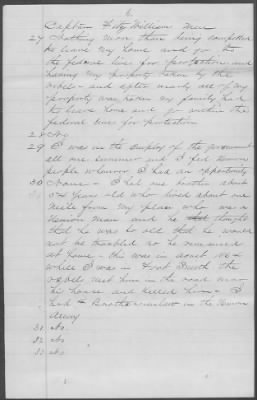 6
Captain Fitz William men
27 Nothing more than being compelled
to leave my home and go to
the federal lines for protection and
having my property taken by the
rebels - and after nearly all of my
property was taken my family had
to leave home and go within the
federal lines for protection
28 No
29 I was in the employ of the government
all one summer and I fed Union
people whenever I had an opportunity
30 I had one brother about
years old who lived about one
mile from my place who was a
Union man and he thought
that he was so old that he would
not be troubled so he remained
at home - this was in about
while I was in Fort Smith the
rebels met him in the road near
his house and killed him - I
had Brothers in law in the Union
Army
31 No.
32 No.
33 No.